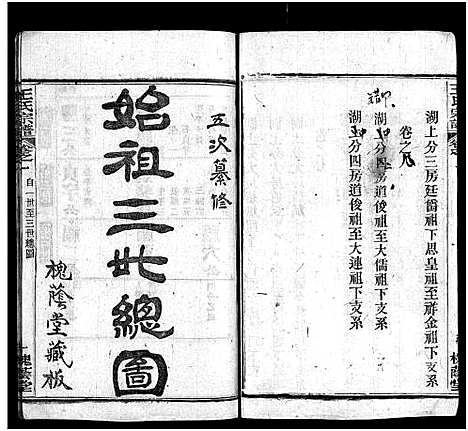 湖上分三房廷循祖下思皇祖至祥金祖下支系
卷之八
湖上分四房道俊祖至大儒祖下支系
湖上分四房道俊祖至大連祖下支系
五次纂修
始祖三世總圖
槐蔭堂藏板
王氏宗譜
卷之一
自一世至三世總圖
槐蔭堂